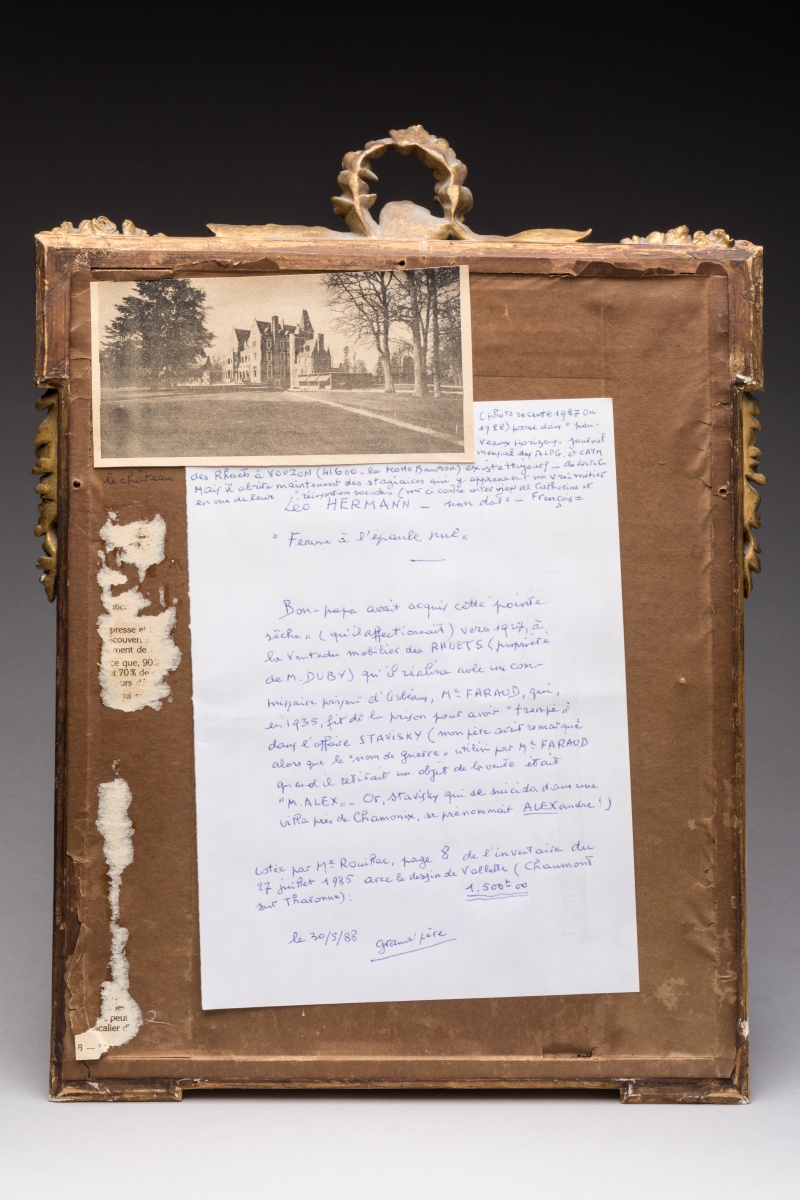 (photo récente 1987 ou
1988) parue dans "nou-
veaux horizons" journal
mensuel des ACPG et CATM
le château
des Rhuets à VOUZON (41600 - la Motte Beuvron) existe toujours -
Mais il abrite maintenant des stagiaires qui y apprennent un vrai métier
en vue de leur "réinsertion sociale" (voir ci contre interview de Catherine et
Léo HERMANN - non daté - François=
"Femme à l'épaule nue"
Bon-papa avait acquis cette "pointe
sèche" (qu'il affectionnait) vers 1927, à
la vente du mobilier des RHUETS (propriété
de M. DUBY) qu'il réalisa avec un com-
missaire priseur d'Orléans, Me FARAUD, qui,
en 1935, fit de la prison pour avoir "trempé"
dans l'affaire STAVISKY (mon père avait remarqué
alors que le "nom de guerre" utilisé par Me FARAUD
quand il retirait un objet de la vente était
"M. ALEX" - Or, Stavisky qui se suicida dans une
villa près de Chamonix, se prénommait ALEXandre!)
Cotée par Me Rouillac, page 8 de l'inventaire du
27 juillet 1985 avec le dessin de Vallette (Chaumont
sur Tharonne):
1.500 00
le 30/5/88 grand'père
presse et
écouvert
ment de
ce que, 90
et 70% de
urs d
peut
calier d
8 —